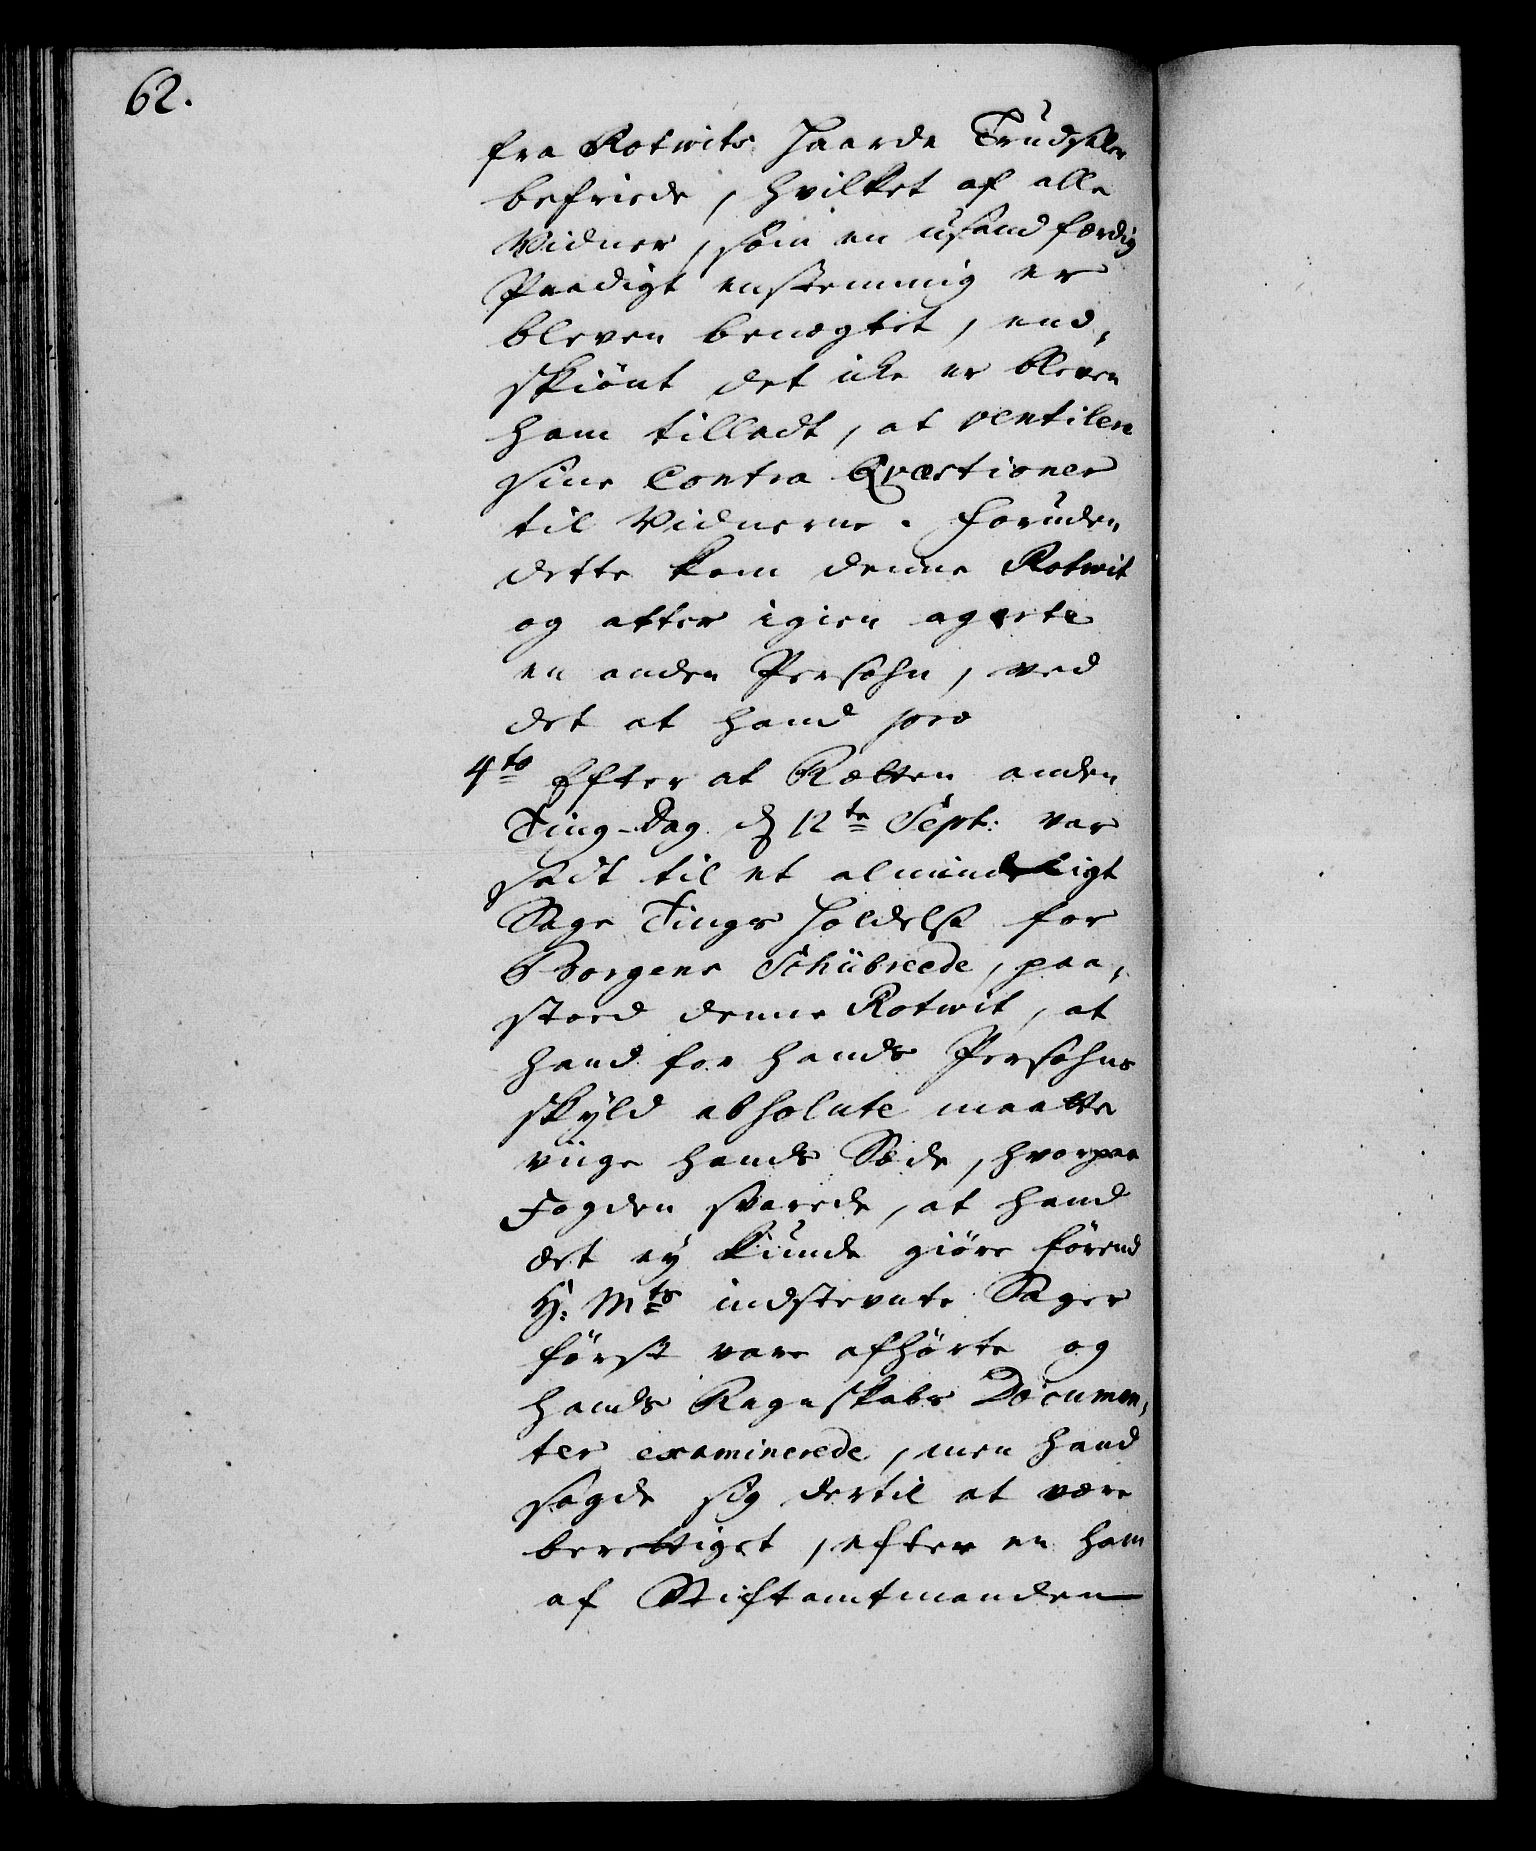 62.
fra Rotwits haarde Trudseler
befriede, hvilket af alle
Vidner, som en usandfærdig
Prædigt enstemmig er
bleven benægtet, end,
skiönt det icke er bleven
ham tilladt, at ventilere
sine Contra Qvæstioner
til Vidnerne. Foruden
dette kom denne Rotwit
og atter igien agerte
en anden Persohn, ved
det at hand pro
4to Efter at Rætten anden
Ting-Dag d 12te Sept: var
sadt til et almindeligt
Sage Tings Holdelse for
Borgens Schibreede, paa,
stoed denne Rotwit, at
hand for hands Persohns
skyld absolute maatte
viige hands Sæde, hvorpaa
Fogden svarede, at hand
det ey kunde giöre förend
H: Mts indstevnte Sager
först vare afhörte og
hands Regnskabs Documen,
ter examinerede, men hand
sagde sig dertil at være
berettiget, efter en ham
af Stiftamtmanden